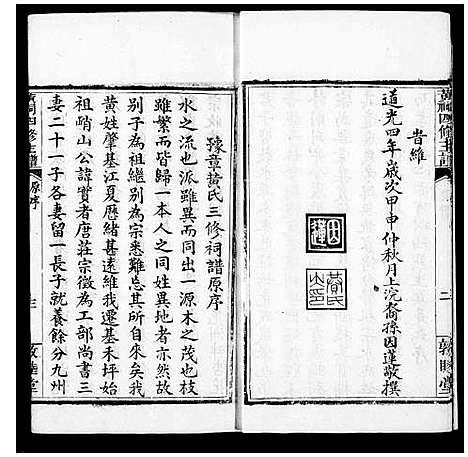 黃祠四修主譜
昔維
道光四年歲次甲申仲秋月上浣裔孫因蓮敬撰
因蓮
黃氏之印
二
敦睦堂
豫章黃氏三修祠譜原序
水之流也派雖異而同出一源木之茂也枝
雖繁而皆歸一本人之同姓異地者亦然故
別子為祖繼別為宗悉難忘其所自來矣我
黃姓肇基江夏歷緒甚遠維我遷基禾坪始
祖峭山公諱實者唐莊宗徵為工部尚書三
妻二十一子各妻留一長子就養餘分九州
黃祠四修主譜
原序
三
敦睦堂